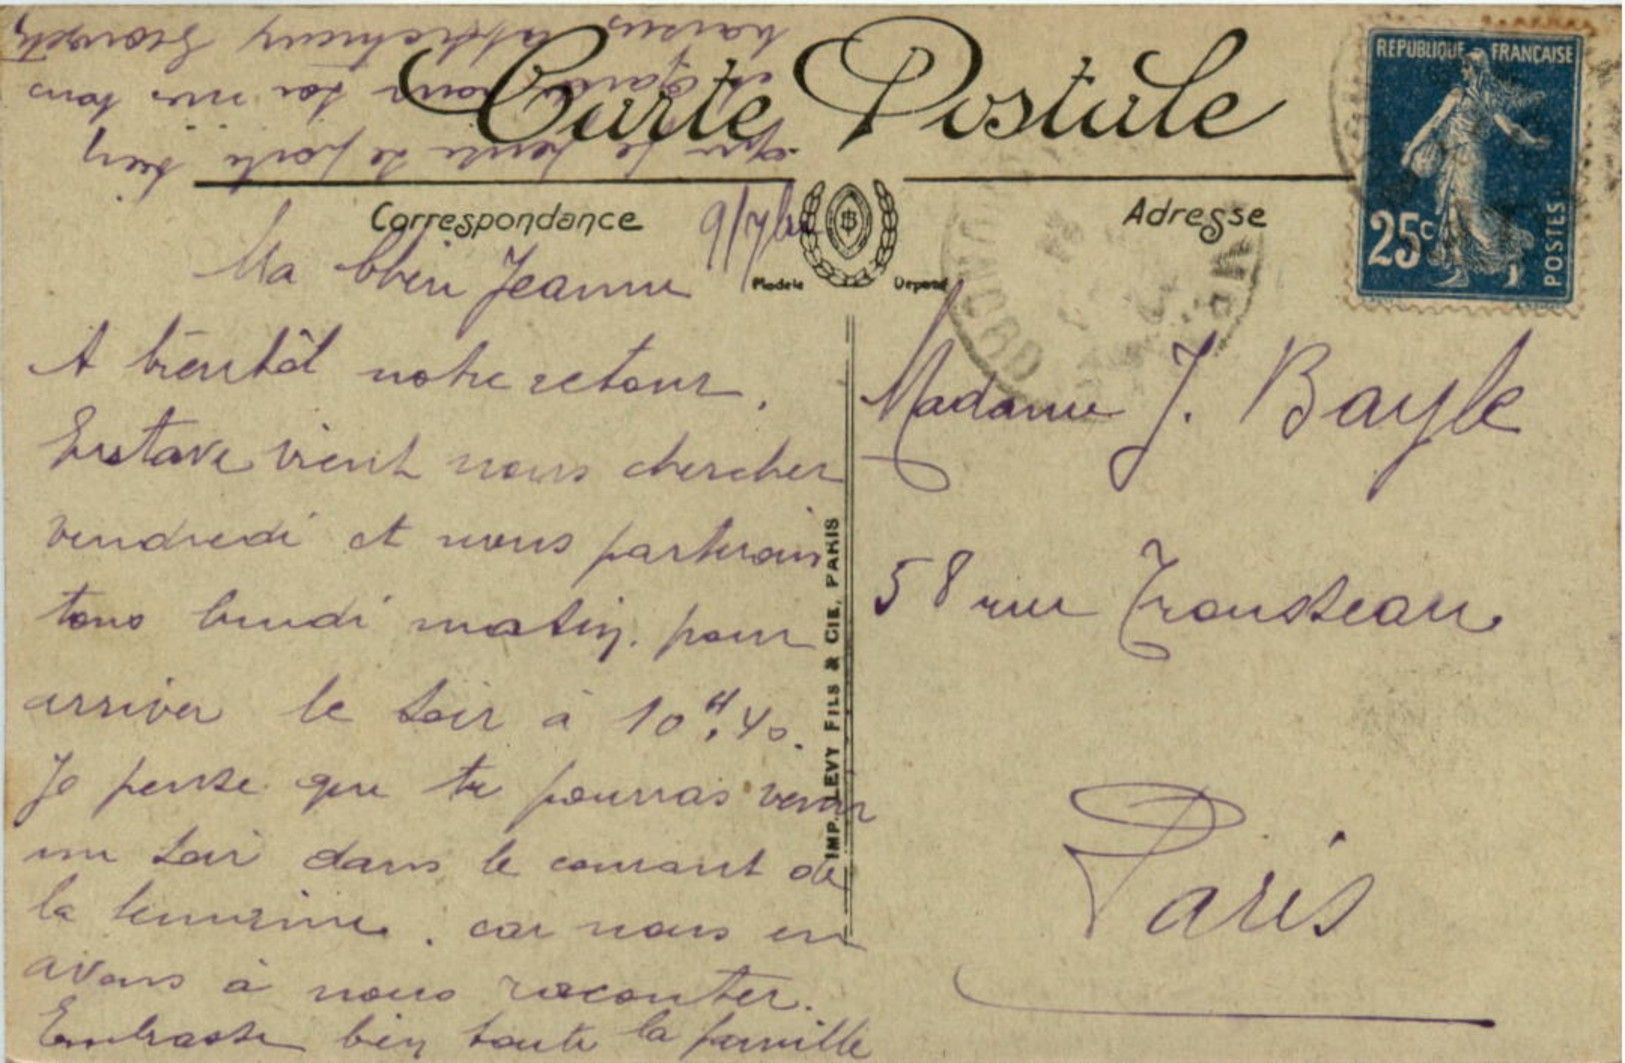 Carte Postale
Correspondance
Adresse
RÉPUBLIQUE FRANÇAISE
25c
POSTES
Modèle Déposé
9/7/
Ma bien Jeanne
A bientôt notre retour.
Gustave vient nous chercher
vendredi et nous partirons
tous lundi matin. pour
arriver le soir à 10H,40.
Je pense que tu pourras venir
un soir dans le courant de
la semaine. car nous en
avons à nous raconter.
Embrasse bien toute la famille
que je pense se porte bien
et garde pour toi nos bons
baisers
IMP. LEVY FILS & CIE. PARIS
Madame J. Bayle
58 rue Trousseau
Paris